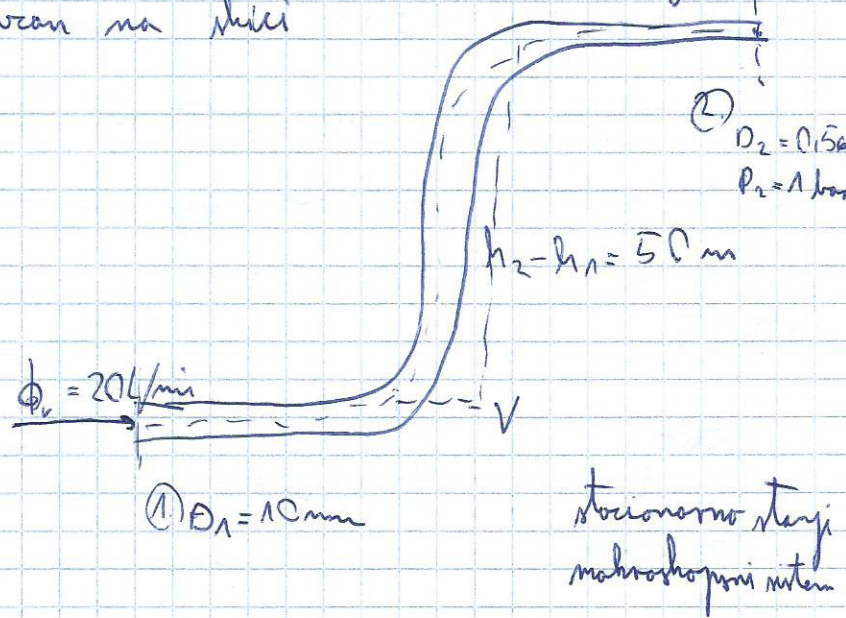 na skici
②
D₂ = 0,5
P₂ = 1 bar
h₂ - h₁ = 50 m
ϕᵥ = 20 L/min
V
① D₁ = 10 mm
stacionarno stanje
makroskopski sistem